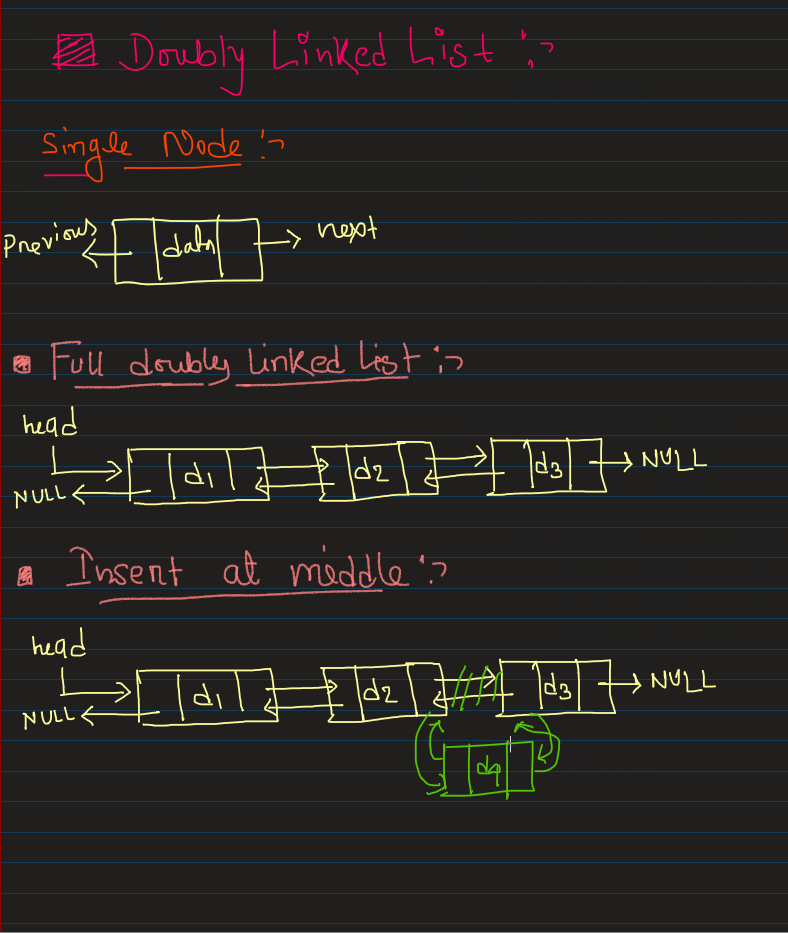 Doubly Linked List :-
Single Node :-
Previous data next
Full doubly linked list :-
head
NULL d1 d2 d3 NULL
Insert at middle :-
head
NULL d1 d2 d3 NULL
d4